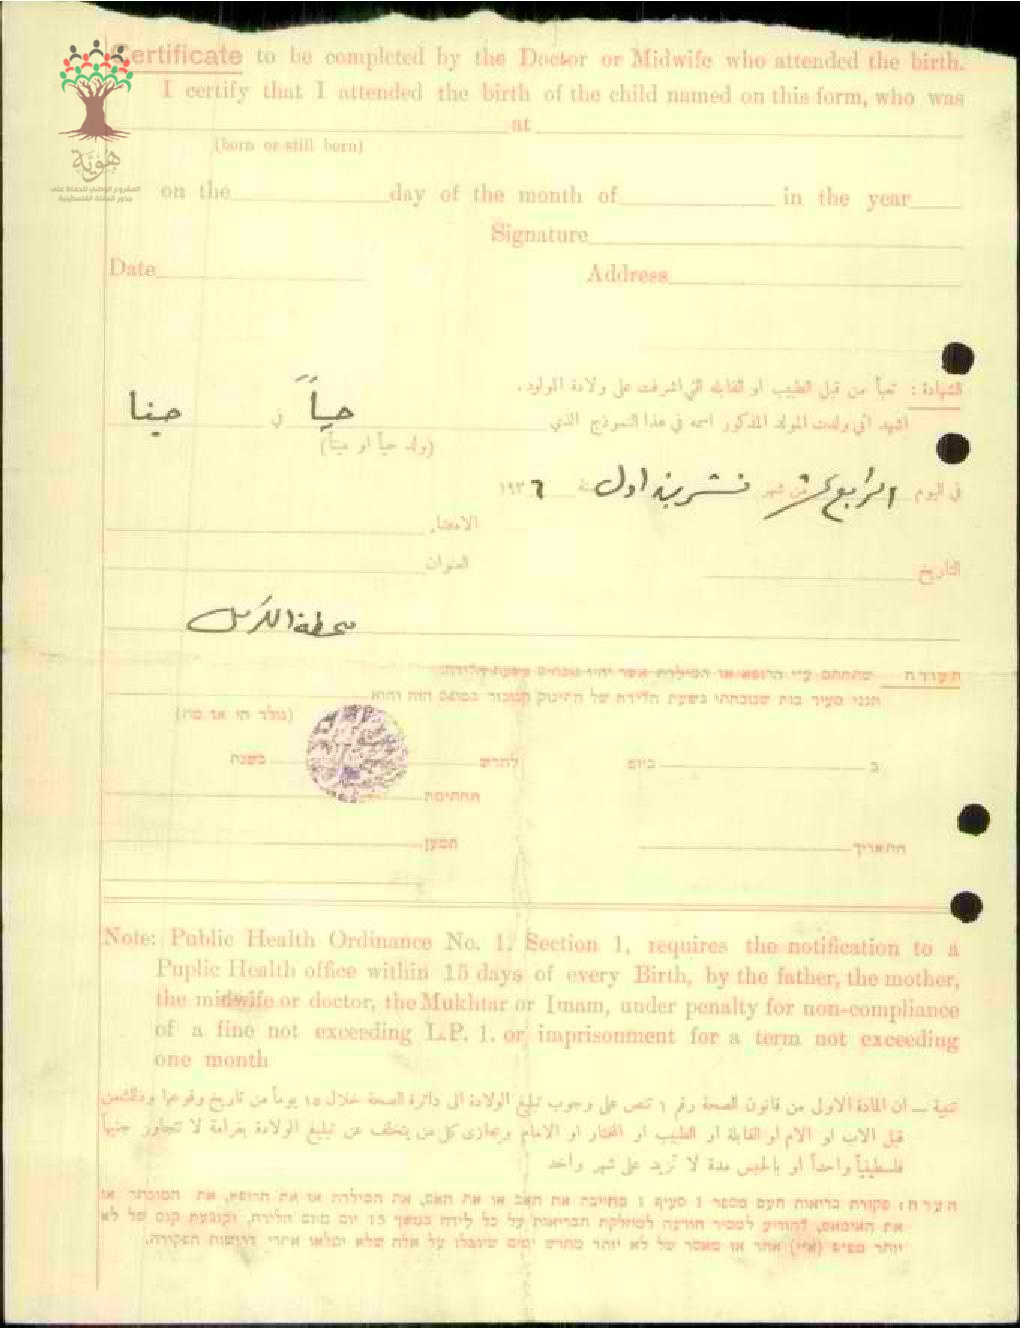 هوية
المشروع الوطني للحفاظ على
جذور العائلة الفلسطينية
Certificate to be completed by the Doctor or Midwife who attended the birth.
I certify that I attended the birth of the child named on this form, who was
at
(born or still born)
on the day of the month of in the year
Signature
Date Address
الشهادة : تعبأ من قبل الطبيب او القابله التي اشرفت على ولادة المولود .
اشهد اني ولدت المولد المذكور اسمه في هذا النموذج الذي حياً في حيفا
(ولد حياً او ميتاً)
في اليوم الرابع عشر من شهر تشرين اول سنة ١٩٣٦
الامضاء
التاريخ العنوان
محطة الكرمل
תעודה שתחתם ע״י הרופא או המילדת אשר יהיו נוכחים בשעת הלידה.
הנני מעיד בזה שנוכחתי בשעת הלידה של התינוק הנזכר בטופס הזה והוא
(נולד חי או מת)
ב ביום לחדש בשנת
חתימת
התאריך המען
Note: Public Health Ordinance No. 1. Section 1, requires the notification to a
Puplic Health office within 15 days of every Birth, by the father, the mother,
the midwife or doctor, the Mukhtar or Imam, under penalty for non-compliance
of a fine not exceeding L.P. 1. or imprisonment for a term not exceeding
one month
تنبيه — ان المادة الاولى من قانون الصحة رقم ١ تنص على وجوب تبليغ الولادة الى دائرة الصحة خلال ١٥ يوماً من تاريخ وقوعها وذلك من
قبل الاب او الام او القابلة او الطبيب او المختار او الامام ويجازى كل من يتخلف عن تبليغ الولادة بغرامة لا تتجاوز جنيهاً
فلسطينياً واحداً او بالحبس مدة لا تزيد على شهر واحد
הערה: פקודת בריאות העם מספר 1 סעיף 1 מחייבת את האב או את האם, את המילדת או את הרופא, את המוכתר או
את האימאם, להודיע למשרד הבריאות על כל לידה במשך 15 יום מיום הלידה,